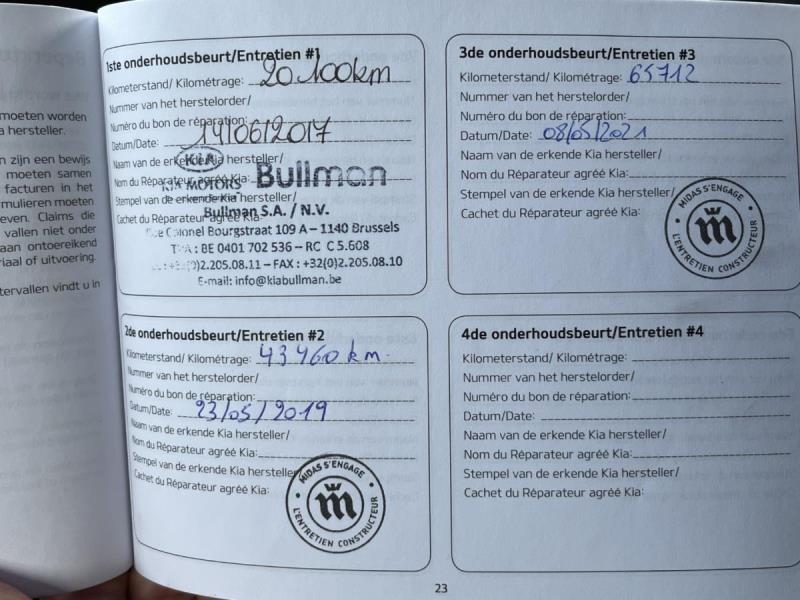 moeten worden
a hersteller.
n zijn een bewijs
moeten samen
facturen in het
mulieren moeten
even. Claims die
vallen niet onder
aan ontoereikend
riaal of uitvoering.
tervallen vindt u in
1ste onderhoudsbeurt/Entretien #1
Kilometerstand/ Kilométrage: 20.100km
Nummer van het herstelorder/
Numéro du bon de réparation:
Datum/Date: 14/06/2017
Naam van de erkende Kia hersteller/
Nom du Réparateur agréé Kia:
KIA
KIA MOTORS Bullman
Stempel van de erkende Kia hersteller/
Cachet du Réparateur agréé Kia:
Bullman S.A. / N.V.
Colonel Bourgstraat 109 A – 1140 Brussels
BE 0401 702 536 – RC C 5.608
2.205.08.11 – FAX : +32(0)2.205.08.10
E-mail: info@kiabullman.be
2de onderhoudsbeurt/Entretien #2
Kilometerstand/ Kilométrage: 43460 km.
Nummer van het herstelorder/
Numéro du bon de réparation:
Datum/Date: 23/05/2019
Naam van de erkende Kia hersteller/
Nom du Réparateur agréé Kia:
Stempel van de erkende Kia hersteller/
Cachet du Réparateur agréé Kia:
MIDAS S'ENGAGE
m
L'ENTRETIEN CONSTRUCTEUR
3de onderhoudsbeurt/Entretien #3
Kilometerstand/ Kilométrage: 65712
Nummer van het herstelorder/
Numéro du bon de réparation:
Datum/Date: 08/05/2021
Naam van de erkende Kia hersteller/
Nom du Réparateur agréé Kia:
Stempel van de erkende Kia hersteller/
Cachet du Réparateur agréé Kia:
MIDAS S'ENGAGE
m
L'ENTRETIEN CONSTRUCTEUR
4de onderhoudsbeurt/Entretien #4
Kilometerstand/ Kilométrage:
Nummer van het herstelorder/
Numéro du bon de réparation:
Datum/Date:
Naam van de erkende Kia hersteller/
Nom du Réparateur agréé Kia:
Stempel van de erkende Kia hersteller/
Cachet du Réparateur agréé Kia:
23